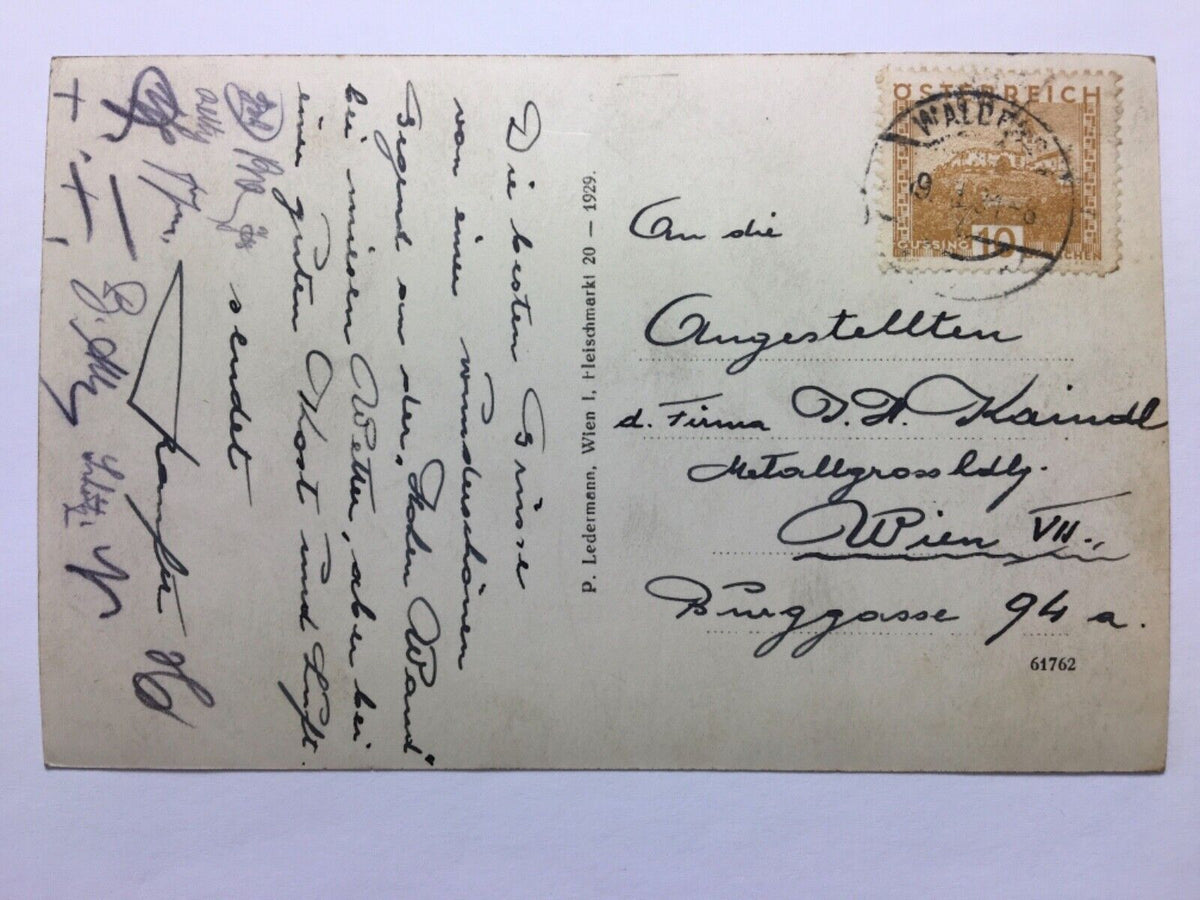 Die besten Grüsse
von einer wunderschönen
Gegend an der „Hohen Wand"
bei miesen Wetter, aber bei
einer guten Kost und Luft.
sendet
P. Ledermann, Wien I, Fleischmarkt 20 — 1929.
ÖSTERREICH
WALD
GÜSSING 10 GROSCHEN
An die
Angestellten
d. Firma J. H. Kaindl
Metallgrosshdlg.
Wien VII.,
Burggasse 94 a.
61762